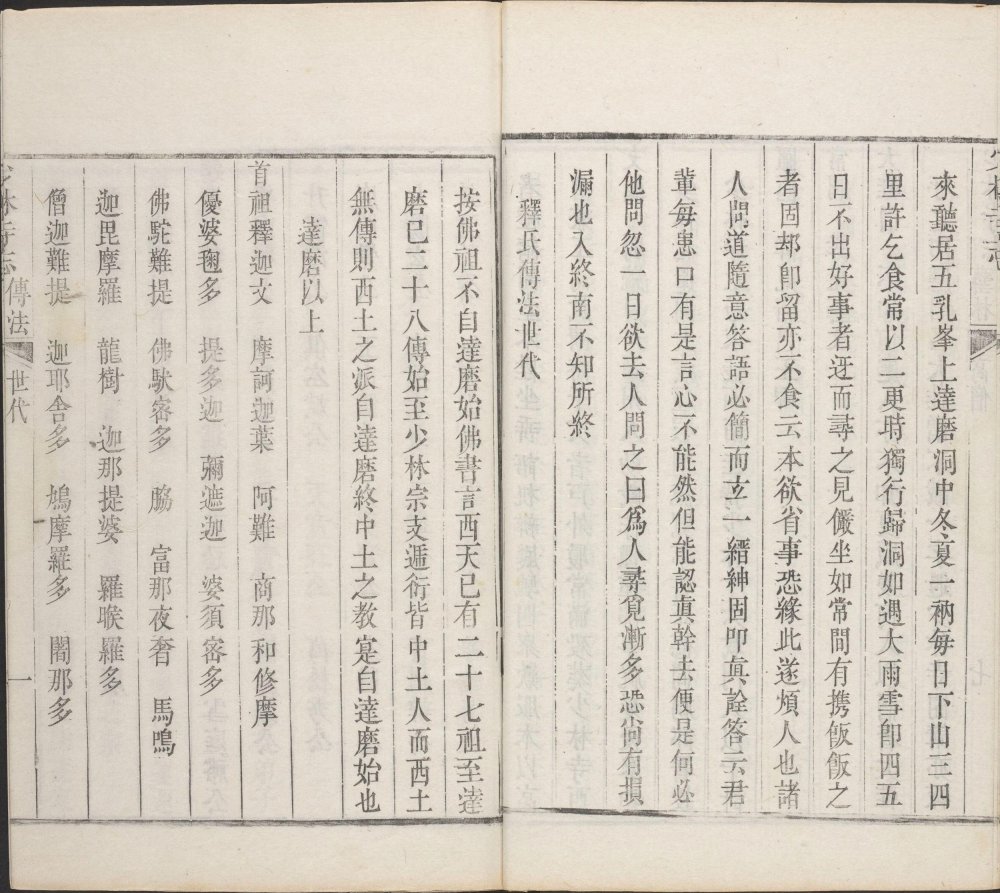 來聽居五乳峯上達磨洞中冬夏一衲每日下山三四
里許乞食常以二更時獨行歸洞如遇大雨雪卽四五
日不出好事者迓而尋之見儼坐如常問有携飯飯之
者固却卽留亦不食云本欲省事恐緣此遂煩人也諸
人問道隨意答語必簡而玄一縉紳固叩眞詮答云君
輩每患口有是言心不能然但能認眞幹去便是何必
他問忽一日欲去人問之曰爲人尋覓漸多恐尙有損
漏也入終南不知所終
釋氏傳法世代
按佛祖不自達磨始佛書言西天已有二十七祖至達
磨已二十八傳始至少林宗支遞衍皆中土人而西土
無傳則西土之派自達磨終中土之教寔自達磨始也
達磨以上
首祖釋迦文 摩訶迦葉 阿難 商那和修摩
優婆毱多 提多迦 彌遮迦 婆須密多
佛駝難提 佛馱密多 脇 富那夜奢 馬鳴
迦毘摩羅 龍樹 迦那提婆 羅睺羅多
僧迦難提 迦耶舍多 鳩摩羅多 闍那多
少林寺志 傳法世代 一